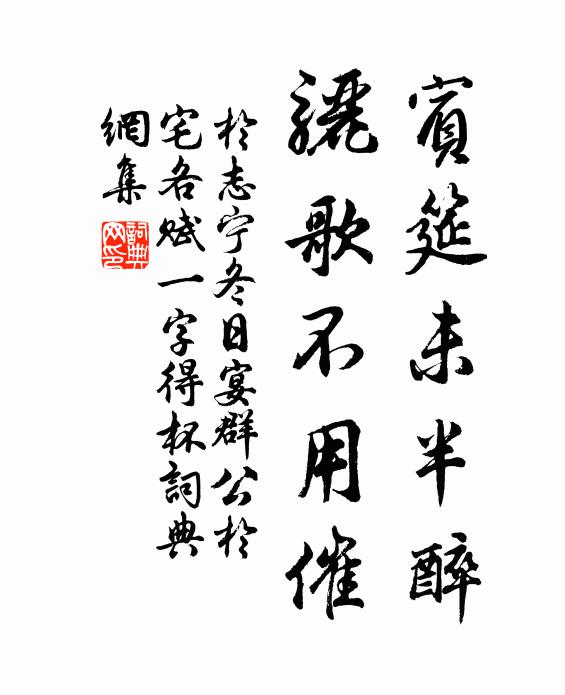 賓筵未半醉
驪歌不用催
於志宁冬日宴群公於
宅各赋一字得杯詞典
網集
詞典網印